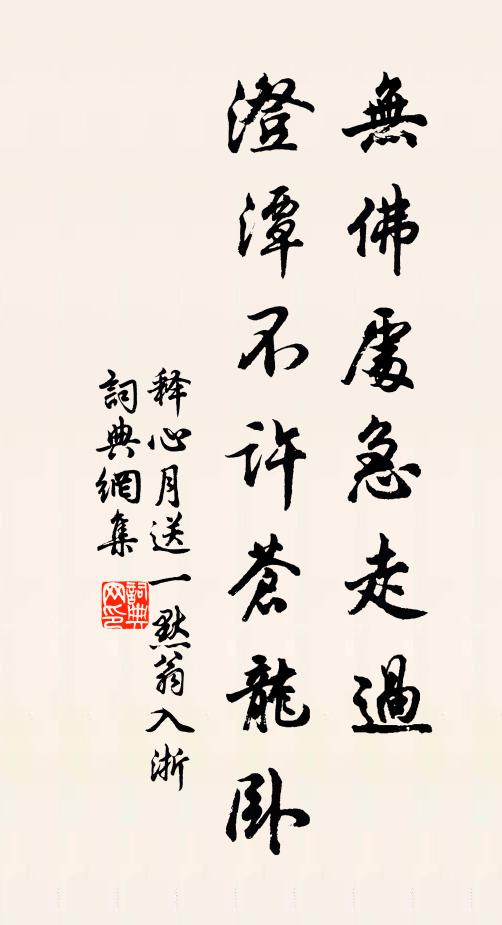 無佛處急走過
澄潭不許蒼龍卧
释心月送一默翁入浙
詞典網集
詞典网印